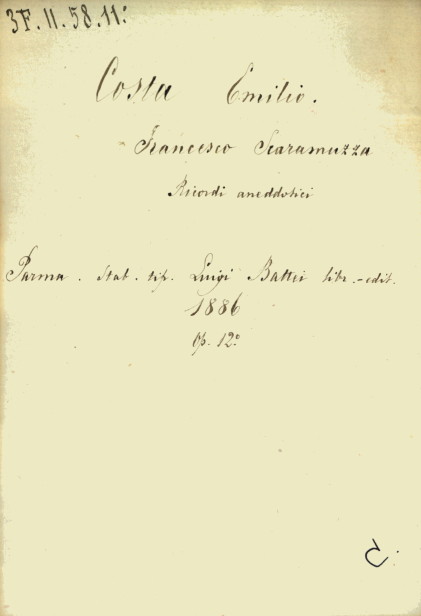 3F. II. 58. 11:
Costa Emilio.
Francesco Scaramuzza
Ricordi aneddotici
Parma. Stab. tip. Luigi Battei libr.-edit.
1886
Op. 12º